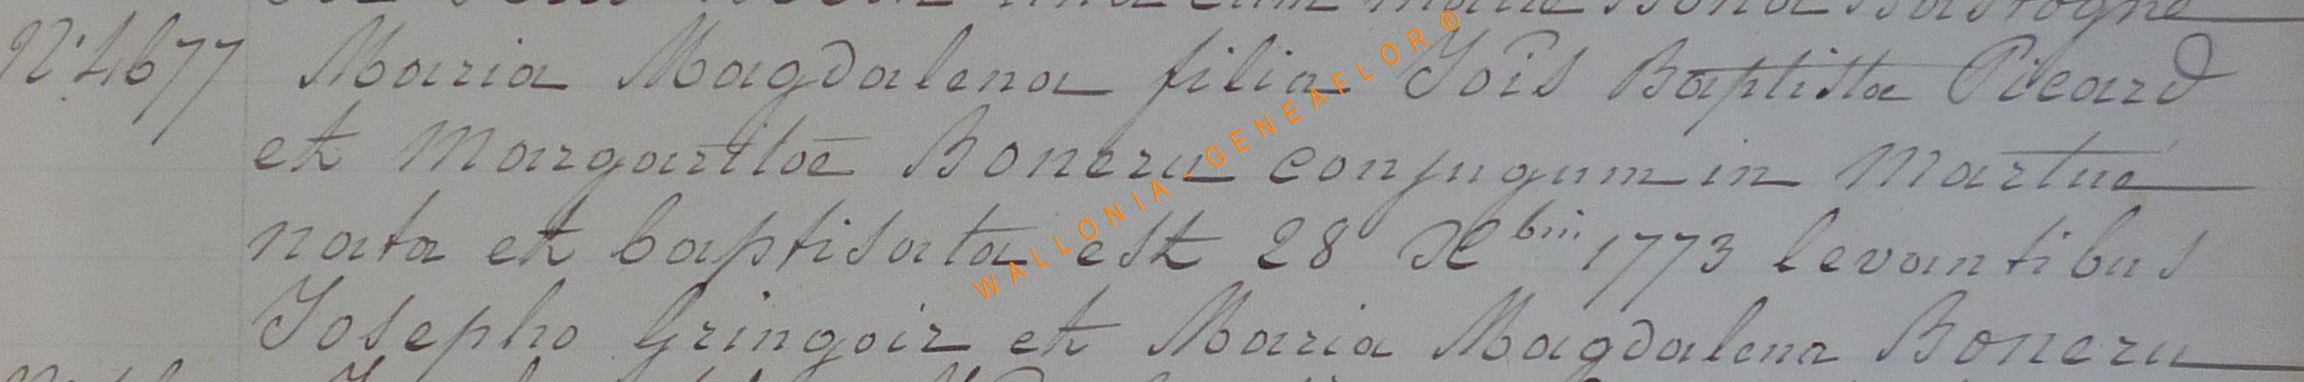 N° 4677 Maria Magdalena filia Jois Baptistae Picard
et Margaritae Boneru conjugum in Martué
nata et baptisata est 28 Xbris 1773 levantibus
Josepho Gringoir et Maria Magdalena Boneru
WALLONIA GENEAFLOR®